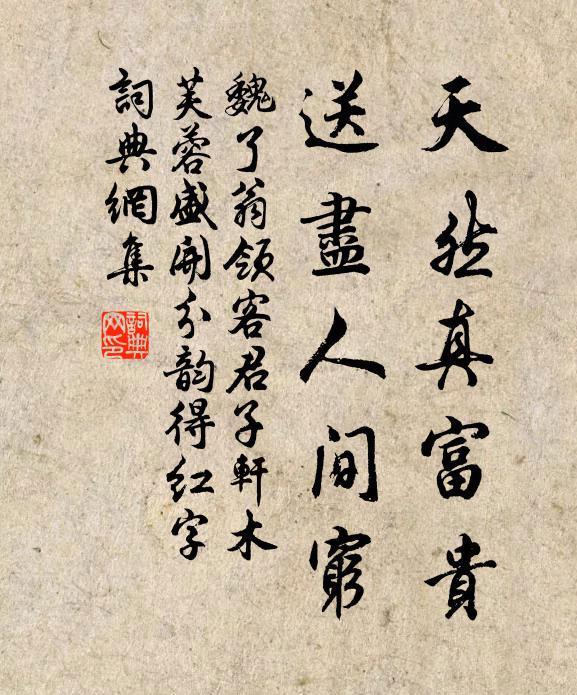 天然真富貴
送盡人間窮
魏了翁領客君子軒木
芙蓉盛開分韵得红字
詞典網集
詞典网印